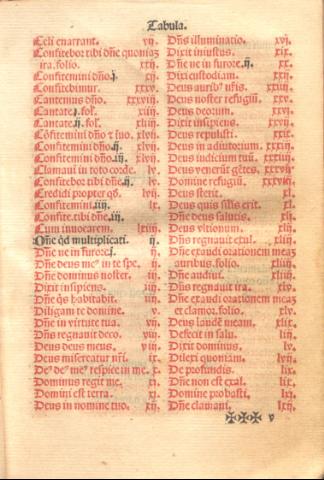 Tabula.
Celi enarrant. xij.
Confitebor tibi dñe quoniaȝ
ira. folio. xxij.
Confitemini dño.j. xij.
Confitebimur. xxxv.
Cantemus dño. xxxviij.
Cantate.j. fol. xliij.
Cantate.ij. fol. xliiij.
Cõfitemini dño ⁊ suo. xlvij.
Confitemini dño.ij. xlvij.
Confitemini dño.iij. xlvij.
Clamaui in toto corde. lv.
Confitebor tibi dñe.ij. lv.
Credidi propter qḋ. lvij.
Confitemini.iiij. lx.
Confite.tibi dñe.iij.
Cum inuocarem. lxiij.
Dñe qḋ multiplicati. ij.
Dñe ne in furore.j. ij.
Dñe deus meꝰ in te spe. ij.
Dñe dominus noster. iij.
Dixit insipiens. iij.
Dñe qs habitabit. iij.
Diligam te domine. v.
Dñe in virtute tua. vij.
Dñs regnauit deco. viij.
Deus deus meus. viij.
Deus misereatur nr̃i. ix.
Deꝰ deꝰ meꝰ respice in me. x.
Dominus regit me. xj.
Domini est terra. xj.
Deus in nomine tuo. xij.
Dñs illuminatio. xvj.
Dixit iniustus. xix.
Dñe ne in furore.ij. xx.
Dixi custodiam. xxj.
Deus auribꝰ nr̃is. xxiij.
Deus noster refugiũ. xxv.
Deus deorum. xxvj.
Dixit insipiens. xxvij.
Deus repulisti. xxix.
Deus in adiutorium. xxxiij.
Deus iudicium tuũ. xxxiij.
Deus venerũt gẽtes. xxxvij.
Domine refugiũ. xxxviij.
Deus stetit. xl.
Deus quis silis erit. xl.
Dñe deus salutis. xlj.
Deus vltionum. xlij.
Dñs regnauit exul. xliij.
Dñe exaudi orationem meaȝ
auribus. folio. xliij.
Dñe audiui. xliiij.
Dñs regnauit ira. xlv.
Dñe exaudi orationem meaȝ
et clamor. folio. xlv.
Deus laudẽ meam. xlix.
Defecit in salu. liij.
Dixit dominus. lv.
Dilexi quoniam. lvij.
De profundis. lix.
Dñe non est exal. lix.
Domine probasti. lxj.
Dñe clamaui. lxij.
✠✠✠ v